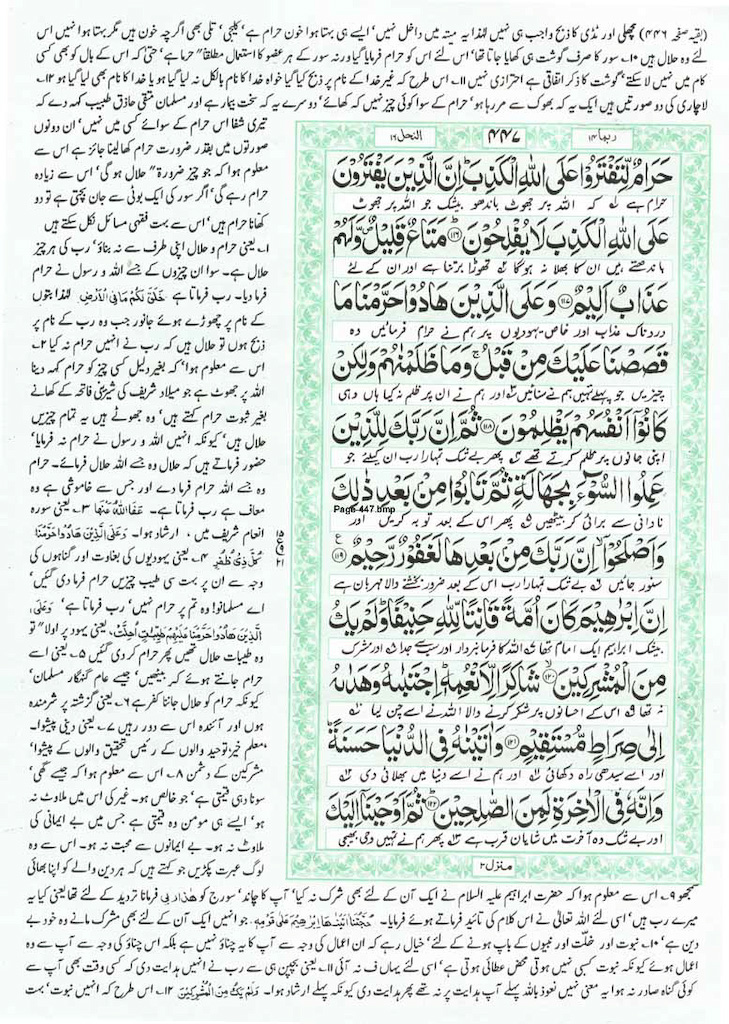 (بقیہ صفحہ ۴۴۶) مچھلی اور ٹڈی کا ذبح واجب ہی نہیں لہٰذا یہ میتہ میں داخل نہیں' ایسے ہی بہتا ہوا خون حرام ہے' کلیجی' تلی بھی اگرچہ خون ہیں مگر بہتا ہوا نہیں اس
لئے وہ حلال ہیں ۱۰۔ سور کا صرف گوشت ہی کھایا جاتا تھا' اس لئے اس کو حرام فرمایا گیا ورنہ سور کے ہر عضو کا استعمال مطلقاً حرام ہے' حتیٰ کہ اس کے بال کو بھی کسی
کام میں نہیں لا سکتے' گوشت کا ذکر اتفاقی ہے احترازی نہیں ۱۱۔ اس طرح کہ غیر خدا کے نام پر ذبح کیا گیا خواہ خدا کا نام بالکل نہ لیا گیا ہو یا خدا کا نام بھی لیا گیا ہو ۱۲۔
لاچاری کی دو صورتیں ہیں ایک یہ کہ بھوک سے مر رہا ہو' حرام کے سوا کوئی چیز نہیں کہ کھائے' دوسرے یہ کہ سخت بیمار ہے اور مسلمان متقی حاذق طبیب کہہ دے کہ
تیری شفا اس حرام کے سوائے کسی میں نہیں' ان دونوں
صورتوں میں بقدر ضرورت حرام کھا لینا جائز ہے اس سے
معلوم ہوا کہ جو چیز ضرورۃً حلال ہوگی' اس سے زیادہ
حرام رہے گی' اگر سور کی ایک بوٹی سے جان بچتی ہے تو دو
کھانا حرام ہیں' اس سے بہت فقہی مسائل نکل سکتے ہیں
۱۔ یعنی حرام و حلال اپنی طرف سے نہ بناؤ' رب کی ہر چیز
حلال ہے۔ سوا ان چیزوں کے جسے اللہ و رسول نے حرام
فرما دیا۔ رب فرماتا ہے خَلَقَ لَكُمْ مَا فِي الْاَرْضِ لہٰذا بتوں
کے نام پر چھوڑے ہوئے جانور جب وہ رب کے نام پر
ذبح ہوں تو حلال ہیں کہ رب نے انہیں حرام نہ کیا ۲۔
اس سے معلوم ہوا' کہ بغیر دلیل کسی چیز کو حرام کہہ دینا
اللہ پر جھوٹ ہے جو میلاد شریف کی شیرینی فاتحہ کے کھانے
بغیر ثبوت حرام کہتے ہیں' وہ جھوٹے ہیں یہ تمام چیزیں
حلال ہیں' کیونکہ انہیں اللہ و رسول نے حرام نہ فرمایا'
حضور فرماتے ہیں کہ حلال وہ جسے اللہ حلال فرمائے۔ حرام
وہ جسے اللہ حرام فرما دے اور جس سے خاموشی ہے وہ
معاف ہے رب فرماتا ہے۔ عَفَا اللّٰهُ عَنْهَا ۳۔ یعنی سورہ
انعام شریف میں، ارشاد ہوا۔ وَعَلَى الَّذِيْنَ هَادُوْا حَرَّمْنَا
كُلَّ ذِيْ ظُفُرٍ ۴۔ یعنی یہودیوں کی بغاوت اور گناہوں کی
وجہ سے ان پر بہت سی طیب چیزیں حرام فرما دی گئیں'
اے مسلمانو! وہ تم پر حرام نہیں' رب فرماتا ہے وَعَلَى
الَّذِيْنَ هَادُوْا حَرَّمْنَا عَلَيْهِمْ طَيِّبٰتٍ اُحِلَّتْ، یعنی یہود پر اولاً تو
وہ طیبات حلال تھیں پھر حرام کر دی گئیں ۵۔ یعنی اسے
حرام جانتے ہوئے کر بیٹھیں' جیسے عام گنہگار مسلمان'
کیونکہ حرام کو حلال جاننا کفر ہے ۶۔ یعنی گزشتہ پر شرمندہ
ہوں اور آئندہ اس سے دور رہیں ۷۔ یعنی دینی پیشوا۔
معلم خیر' توحید والوں کے رئیس تحقیق والوں کے پیشوا'
مشرکین کے دشمن ۸۔ اس سے معلوم ہوا کہ جیسے گھی'
سونا وہی قیمتی ہے' جو خالص ہو۔ غیر کی اس میں ملاوٹ نہ
ہو' ایسے ہی مومن وہ قیمتی ہے جس میں بے ایمانی کی
ملاوٹ نہ ہو۔ بے ایمانوں سے محبت نہ ہو۔ اس سے وہ
لوگ عبرت پکڑیں جو کہتے ہیں کہ ہر دین والے کو اپنا بھائی
ربما ۱۴
۴۴۷
النحل ۱۶
حَرَامٌ لِّتَفْتَرُوْا عَلَى اللّٰهِ الْكَذِبَ ؕ اِنَّ الَّذِيْنَ يَفْتَرُوْنَ
حرام ہے لہ کہ اللہ پر جھوٹ باندھو بیشک جو اللہ پر جھوٹ
عَلَى اللّٰهِ الْكَذِبَ لَا يُفْلِحُوْنَ ﴿۱۱۶﴾ مَتَاعٌ قَلِيْلٌ ۪ وَّلَهُمْ
باندھتے ہیں ان کا بھلا نہ ہوگا ۲ تھوڑا برتنا ہے اور ان کے لئے
عَذَابٌ اَلِيْمٌ ﴿۱۱۷﴾ وَعَلَى الَّذِيْنَ هَادُوْا حَرَّمْنَا مَا
دردناک عذاب اور خاص یہودیوں پر ہم نے حرام فرمائیں وہ
قَصَصْنَا عَلَيْكَ مِنْ قَبْلُ ۚ وَمَا ظَلَمْنٰهُمْ وَلٰكِنْ
چیزیں جو پہلے تمہیں ہم نے سنائیں ۳ اور ہم نے ان پر ظلم نہ کیا ہاں وہی
كَانُوْۤا اَنْفُسَهُمْ يَظْلِمُوْنَ ﴿۱۱۸﴾ ثُمَّ اِنَّ رَبَّكَ لِلَّذِيْنَ
اپنی جانوں پر ظلم کرتے تھے ۴ پھر بے شک تمہارا رب ان کیلئے جو
عَمِلُوا السُّوْٓءَ بِجَهَالَةٍ ثُمَّ تَابُوْا مِنْۢ بَعْدِ ذٰلِكَ
Page-447.bmp
نادانی سے برائی کر بیٹھیں ۵ پھر اس کے بعد توبہ کریں اور
وَاَصْلَحُوْۤا ۙ اِنَّ رَبَّكَ مِنْۢ بَعْدِهَا لَغَفُوْرٌ رَّحِيْمٌ ﴿۱۱۹﴾
سنور جائیں ۶ بے شک تمہارا رب اس کے بعد ضرور بخشنے والا مہربان ہے
اِنَّ اِبْرٰهِيْمَ كَانَ اُمَّةً قَانِتًا لِّلّٰهِ حَنِيْفًا ؕ وَلَمْ يَكُ
بیشک ابراہیم ایک امام تھا ۷ اللہ کا فرمانبردار اور سب سے جدا ۸ اور مشرک
مِنَ الْمُشْرِكِيْنَ ﴿۱۲۰﴾ شَاكِرًا لِّاَنْعُمِهٖ ؕ اِجْتَبٰىهُ وَهَدٰىهُ
نہ تھا ۹ اس کے احسانوں پر شکر کرنے والا اللہ نے اسے چن لیا ۱۰
اِلٰى صِرَاطٍ مُّسْتَقِيْمٍ ﴿۱۲۱﴾ وَاٰتَيْنٰهُ فِي الدُّنْيَا حَسَنَةً ؕ
اور اسے سیدھی راہ دکھائی ۱۱ اور ہم نے اسے دنیا میں بھلائی دی ۱۲
وَاِنَّهٗ فِي الْاٰخِرَةِ لَمِنَ الصّٰلِحِيْنَ ﴿۱۲۲﴾ ثُمَّ اَوْحَيْنَاۤ اِلَيْكَ
اور بے شک وہ آخرت میں شایان قرب ہے ۱۳ پھر ہم نے تمہیں وحی بھیجی
منزل ۳
سمجھو ۹۔ اس سے معلوم ہوا کہ حضرت ابراہیم علیہ السلام نے ایک آن کے لئے بھی شرک نہ کیا' آپ کا چاند' سورج کو هٰذَا رَبِّيْ فرمانا تردید کے لئے تھا یعنی کیا یہ
میرے رب ہیں' اسی لئے اللہ تعالیٰ نے اس کلام کی تائید فرماتے ہوئے فرمایا۔ حُجَّتُنَا اٰتَيْنٰهَا اِبْرٰهِيْمَ عَلٰى قَوْمِهٖ جو انہیں ایک آن کے لئے بھی مشرک مانے وہ خود بے
دین ہے' ۱۰۔ نبوت اور خلت اور نبیوں کے باپ ہونے کے لئے' خیال رہے کہ ان اعمال کی وجہ سے آپ کا یہ چناؤ نہیں ہے بلکہ اس چناؤ کی وجہ سے آپ سے وہ
اعمال ہوئے کیونکہ نبوت کسبی نہیں ہوتی محض عطائی ہوتی ہے' اسی لئے یہاں ف نہ آئی ۱۱۔ یعنی بچپن ہی سے رب نے انہیں ہدایت دی کہ کسی وقت بھی آپ سے
کوئی گناہ صادر نہ ہوا یہ معنی نہیں نعوذ باللہ پہلے آپ ہدایت پر نہ تھے پھر ہدایت دی کیونکہ پہلے ارشاد ہوا۔ وَلَمْ يَكُ مِنَ الْمُشْرِكِيْنَ ۱۲۔ اس طرح کہ انہیں نبوت' بہت